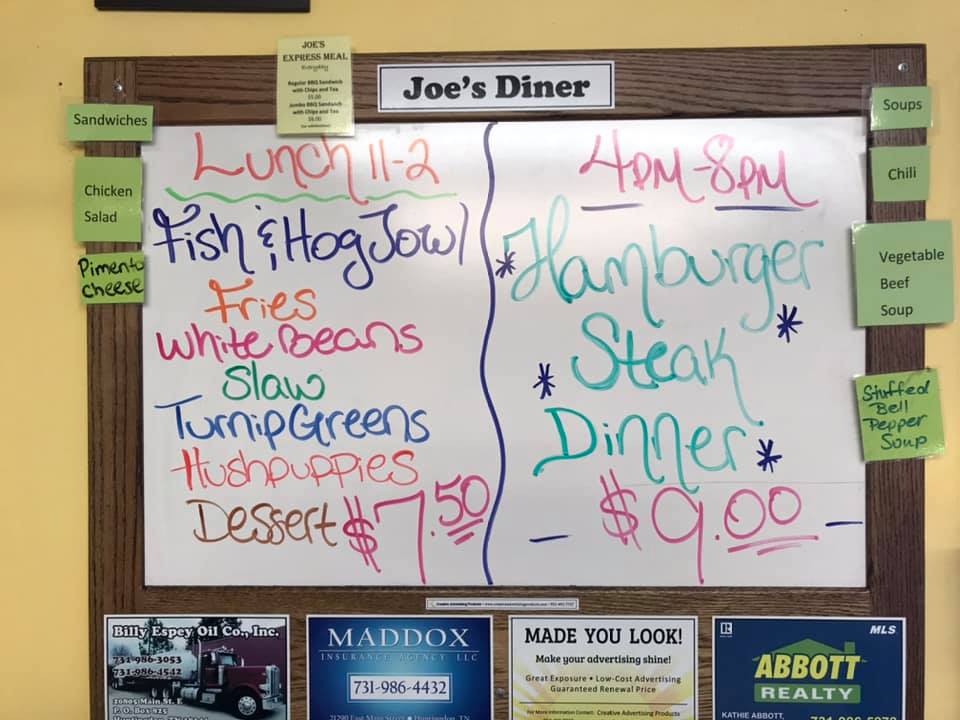 Joe's Diner
JOE'S
EXPRESS MEAL
Everyday
Regular BBQ Sandwich
with Chips and Tea
$5.00
Jumbo BBQ Sandwich
with Chips and Tea
$6.00
Sandwiches
Chicken
Salad
Pimento
Cheese
Lunch 11-2
Fish & Hog Jowl
Fries
White Beans
Slaw
Turnip Greens
Hushpuppies
Dessert $7.50
4PM-8PM
*Hamburger
Steak *
* Dinner *
- $9.00 -
Soups
Chili
Vegetable
Beef
Soup
Stuffed
Bell
Pepper
Soup
Billy Espey Oil Co., Inc.
731-986-3053
731-986-4542
20805 Main St. E
P.O. Box 825
Huntingdon, TN
MADDOX
INSURANCE AGENCY LLC
731-986-4432
21290 East Main Street • Huntingdon, TN
MADE YOU LOOK!
Make your advertising shine!
Great Exposure • Low-Cost Advertising
Guaranteed Renewal Price
For More Information Contact: Creative Advertising Products
R
MLS
ABBOTT
REALTY
KATHIE ABBOTT,